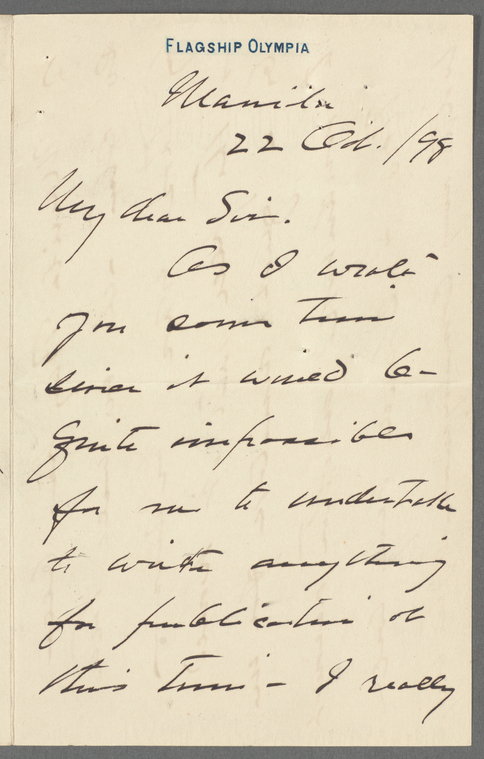 FLAGSHIP OLYMPIA
Manila
22 Oct. /98
My dear Sir.
As I wrote
you some time
since it would be
quite impossible
for me to undertake
to write anything
for publication at
this time - I really